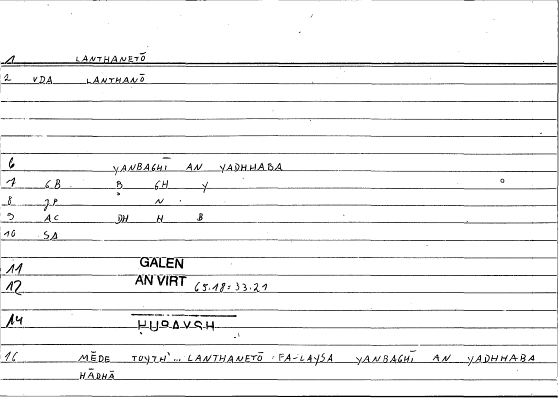 1 LANTHANETŌ
2 VDA LANTHANŌ
6 YANBAGHĪ AN YADHHABA
7 GB B GH Y
8 JP N
9 AC DH H B
10 SA
11 GALEN
12 AN VIRT 65.18 = 33.21
14 ḤUBAYSH
16 MĒDE TOYTH'... LANTHANETŌ : FA-LAYSA YANBAGHĪ AN YADHHABA
HĀDHĀ